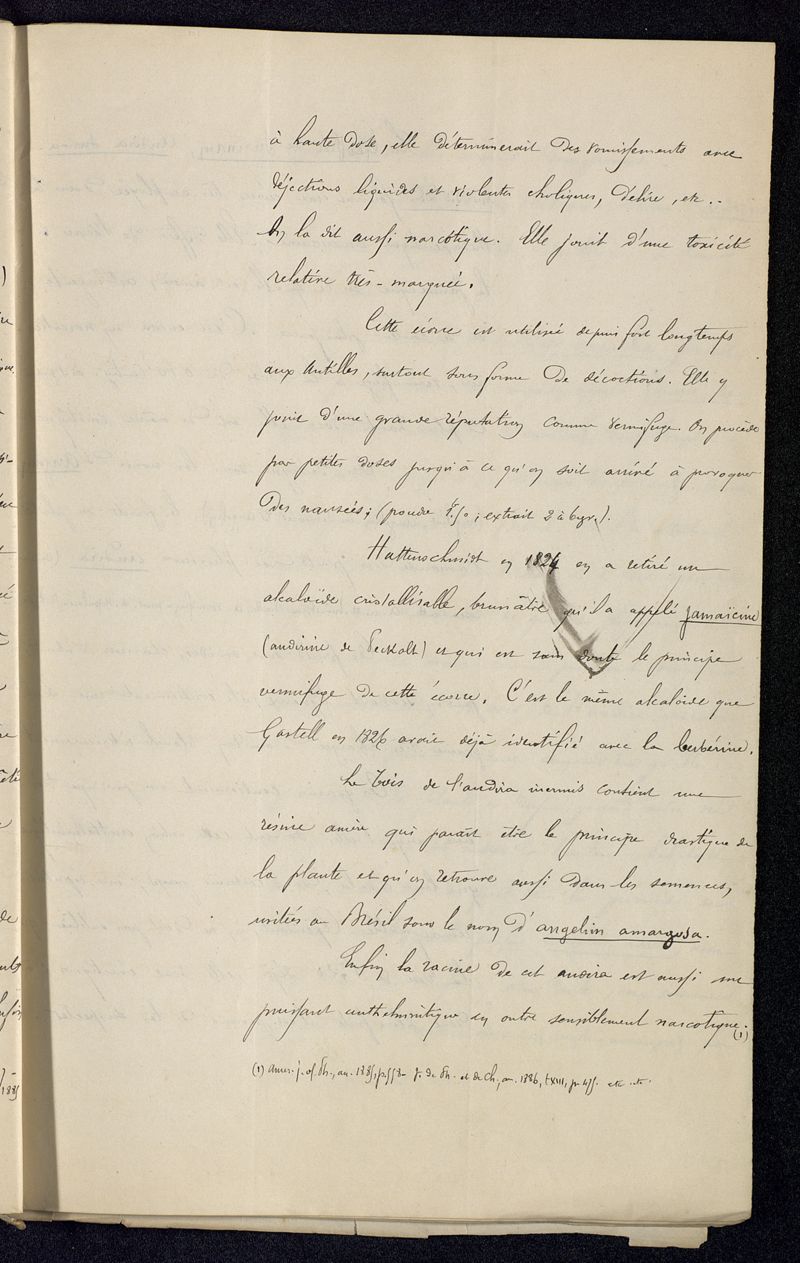 à haute dose, elle déterminerait des vomissements avec
déjections liquides et violentes choliques, délire, etc..
On la dit aussi narcotique. Elle jouit d'une toxicité
relative très-marquée.
Cette écorce est utilisée depuis fort longtemps
aux Antilles, surtout sous forme de décoctions. Elle y
jouit d'une grande réputation comme vermifuge. On procède
par petites doses jusqu'à ce qu'on soit arrivé à provoquer
des nausées; (poudre ; extrait 2 à 6 gr.).
Huttenschmidt en 1824 en a retiré un
alcaloïde cristallisable, brunâtre qu'il a appelé jamaïcine
(andirine de Peckolt) et qui est sans doute le principe
vermifuge de cette écorce. C'est le même alcaloïde que
Gastell en 1826 avait déjà identifié avec la berbérine.
Le bois de l'andira inermis contient une
résine amère qui parait être le principe drastique de
la plante et qu'on retrouve aussi dans les semences,
usitées au Brésil sous le nom d'angelim amargosa.
Enfin la racine de cet andira est aussi un
puissant anthelmintique en outre sensiblement narcotique. (1)
(1) Amer. j. of. Ph., an. 1885, p. 558 - J. de Ph. et de Ch., an. 1886, t XIII, p. 455. etc